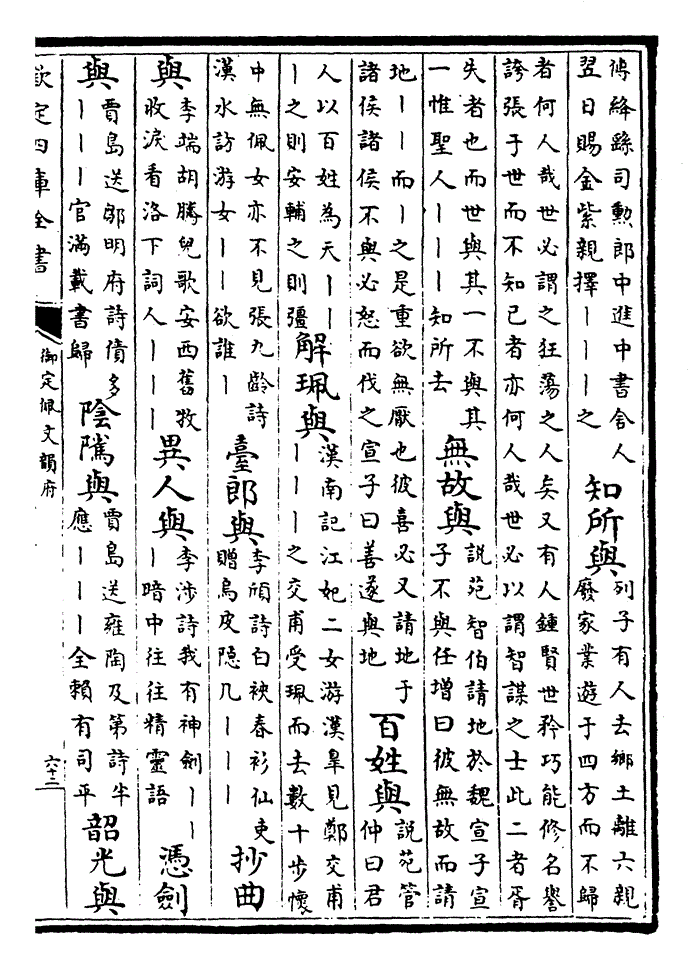 傅絳繇司勲郎中進中書舍人
翌日賜金紫親擇丨丨丨之
知所與
列子有人去鄉土離六親
廢家業遊于四方而不歸
者何人哉世必謂之狂蕩之人矣又有人鍾賢世矜巧能修名譽
誇張于世而不知已者亦何人哉世必以謂智謀之士此二者胥
失者也而世與其一不與其
一惟聖人丨丨丨知所去
無故與
説苑智伯請地於魏宣子宣
子不與任增曰彼無故而請
地丨丨而丨之是重欲無厭也彼喜必又請地于
諸侯諸侯不與必怒而伐之宣子曰善遂與地
百姓與
説苑管
仲曰君
人以百姓為天丨丨
丨之則安輔之則彊
解珮與
漢南記江妃二女游漢臯見鄭交甫
丨丨丨之交甫受珮而去數十步懷
中無佩女亦不見張九齡詩
漢水訪游女丨丨欲誰丨
臺郎與
李頎詩白袂春衫仙吏
贈烏皮隐几丨丨丨
抄曲
與
李端胡騰兒歌安西舊牧
收淚看洛下詞人丨丨丨
異人與
李涉詩我有神劍丨丨
丨暗中往往精靈語
憑劍
與
賈島送鄒明府詩債多
丨丨丨官滿載書歸
陰隲與
賈島送雍陶及第詩半
應丨丨丨全賴有司平
韶光與
欽定四庫全書
御定佩文韻府
六十二